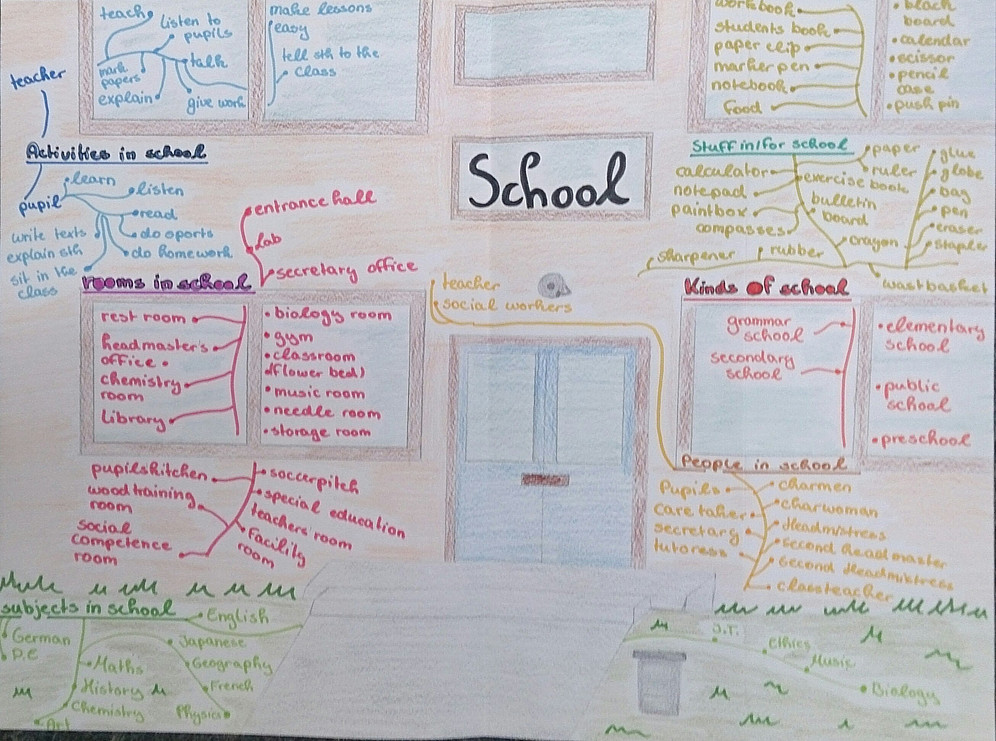 teach
listen to
pupils
talk
mark
papers
explain
give work
make lessons
easy
tell sth to the
class
workbook
students book
paper clip
marker pen
notebook
food
• black
board
• calendar
• scissor
• pencil
case
• push pin
teacher
Activities in school
pupil
learn
listen
read
do sports
do homework
write texts
explain sth
sit in the
class
School
Stuff in/for school
calculator
notepad
paintbox
compasses
sharpener
rubber
exercise book
bulletin
board
crayon
paper
ruler
glue
globe
bag
pen
eraser
stapler
wastbasket
entrance hall
Lab
secretary office
rooms in school
rest room
headmaster's
office
chemistry
room
Library
• biology room
• gym
• classroom
(flower bed)
• music room
• needle room
• storage room
pupilskitchen
wood training
room
social
competence
room
soccerpitch
special education
teachers room
Facility
room
teacher
social workers
Kinds of school
grammar
school
secondary
school
• elementary
school
• public
school
• preschool
People in school
Pupils
care taker
secretary
tutoress
charmen
charwoman
Headmistress
second Headmaster
second Headmistress
classteacher
subjects in school
English
German
P.E
Maths
History
Chemistry
Art
Japanese
Geography
French
Physics
Ethics
Music
Biology